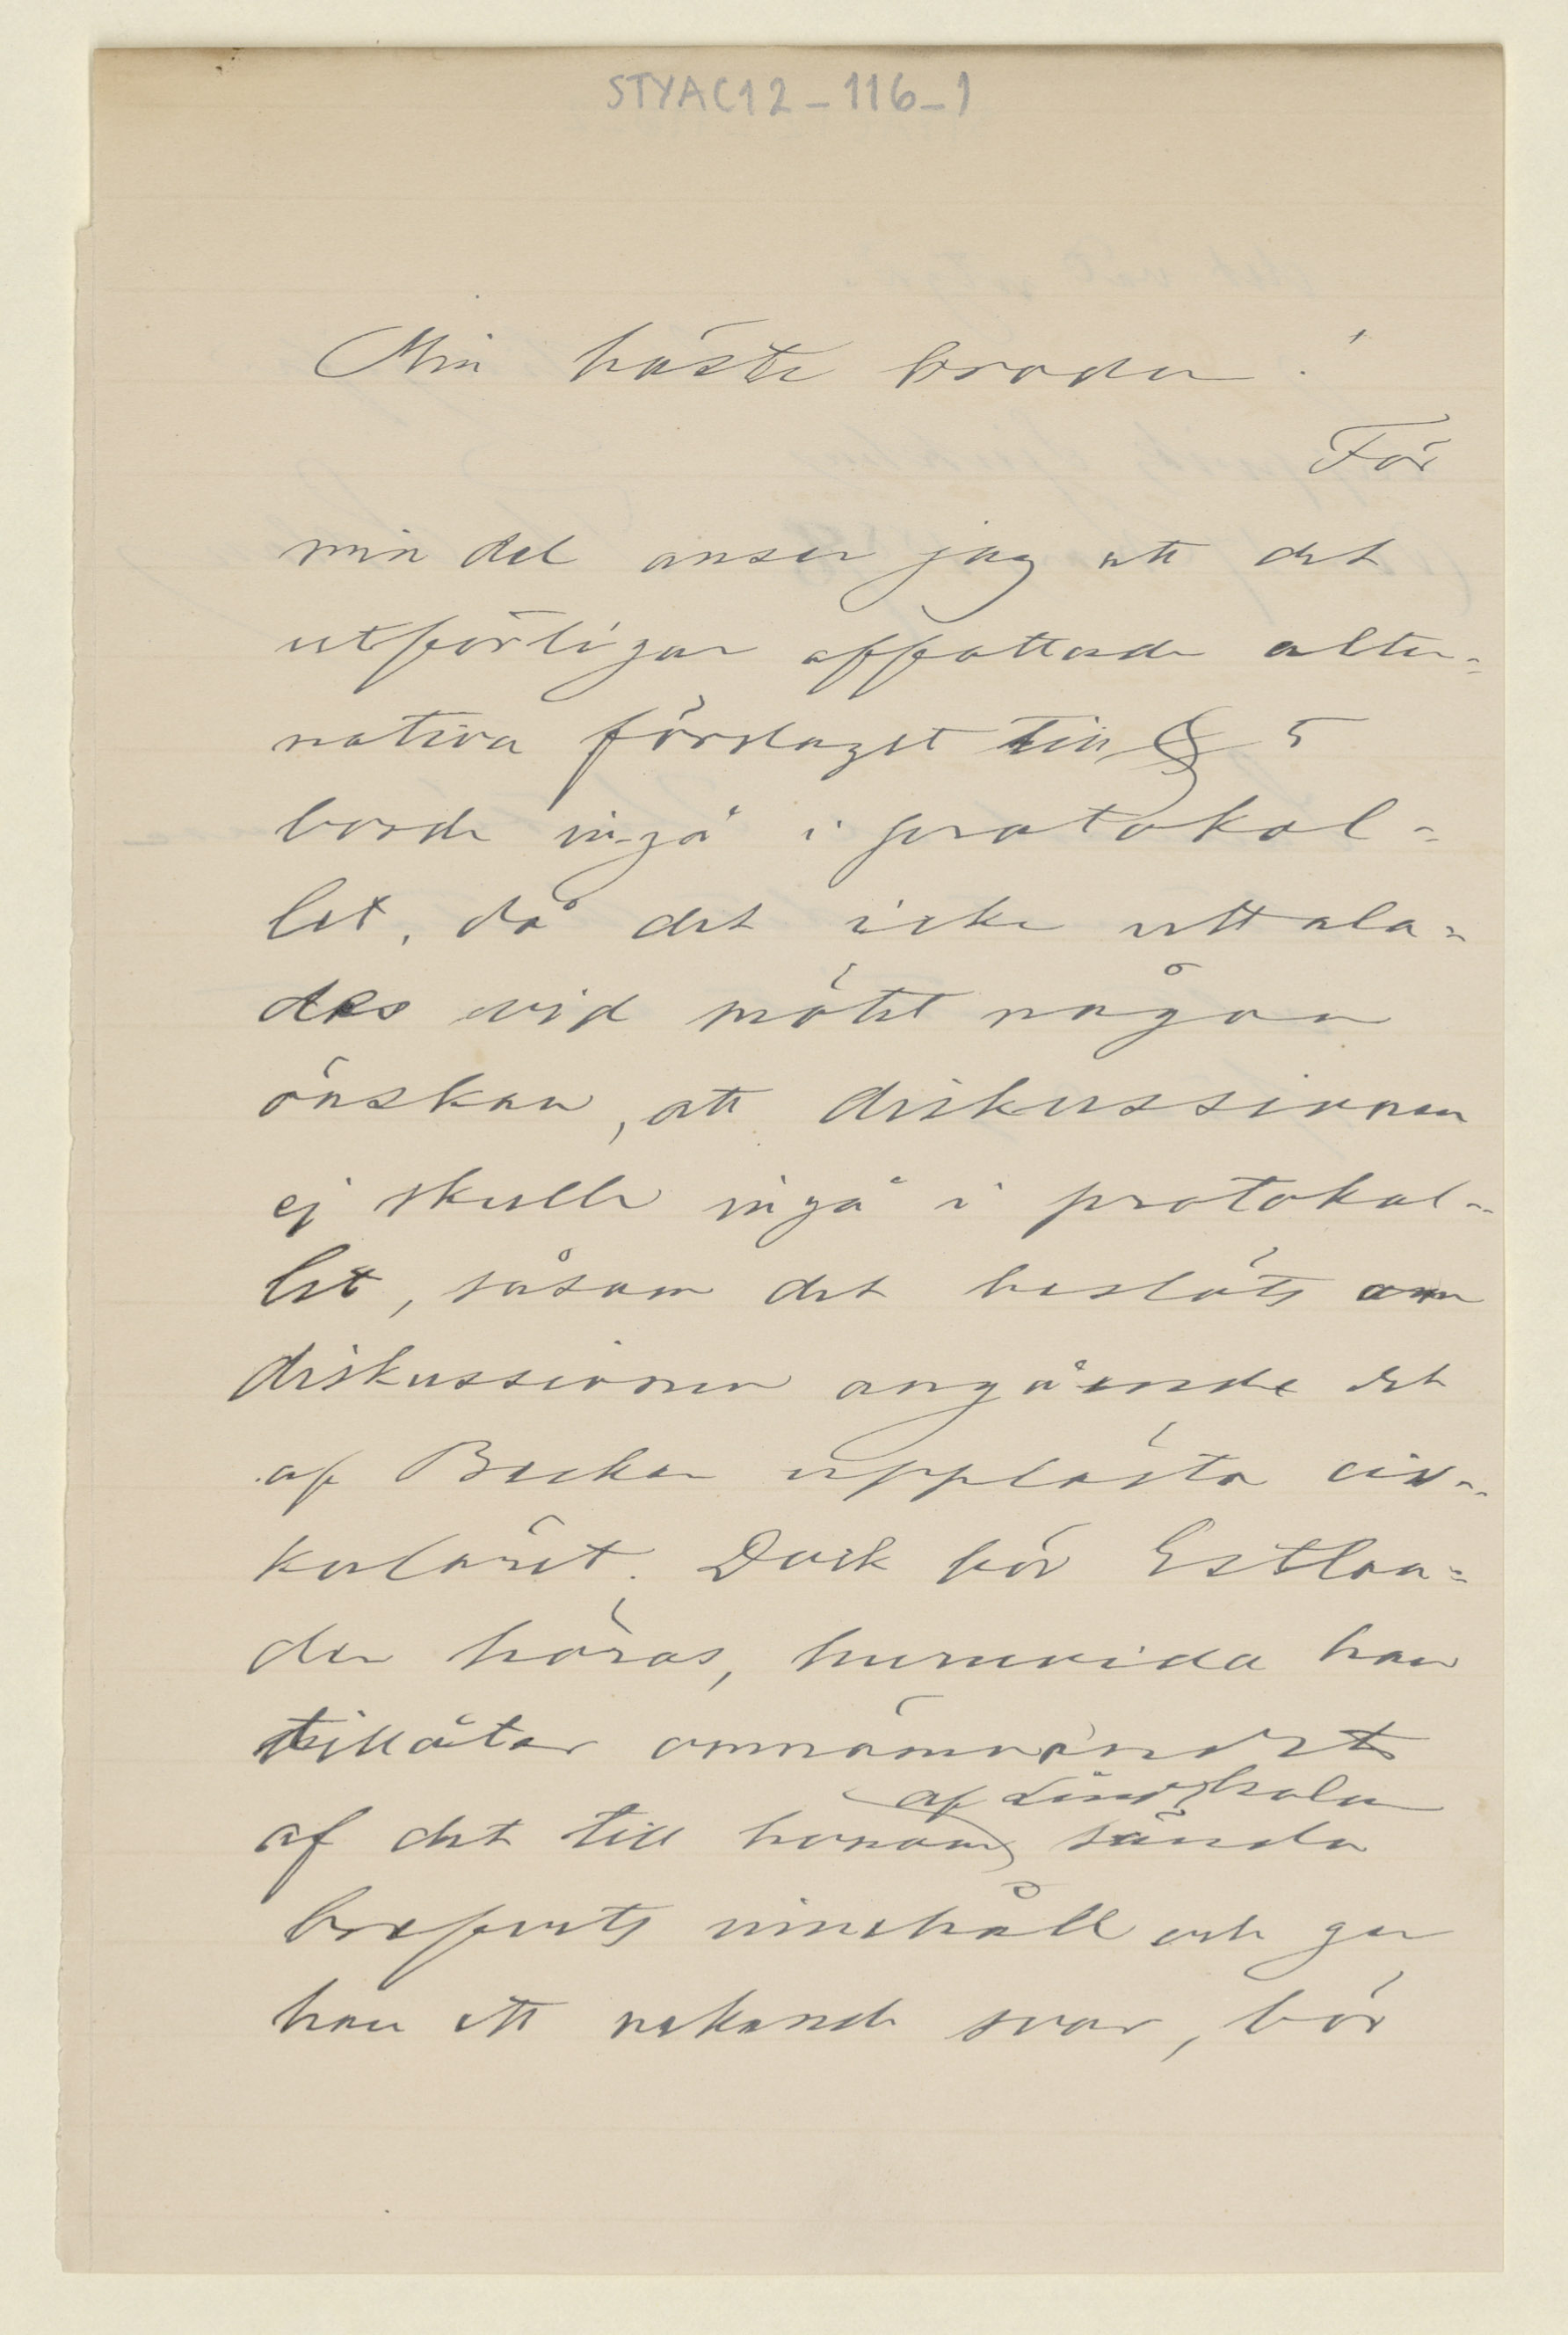 STYAC12_116_1
Min bäste broder!
För
min del anser jag att det
utförligare affattade alter=
nativa förslaget till § 5
borde ingå i protokol=
let, då det icke uttala=
des vid mötet någon
önskan, att diskussionen
ej skulle ingå i protokol=
let, såsom det beslöts om
diskussionen angående det
af Becker upplästa cir=
kuläret. Dock bör Estlan=
der höras, huruvida han
tillåter omnämnandet
af Lindholm
af det till honom sända
brefvets innehåll och ger
han ett nekande svar, bör